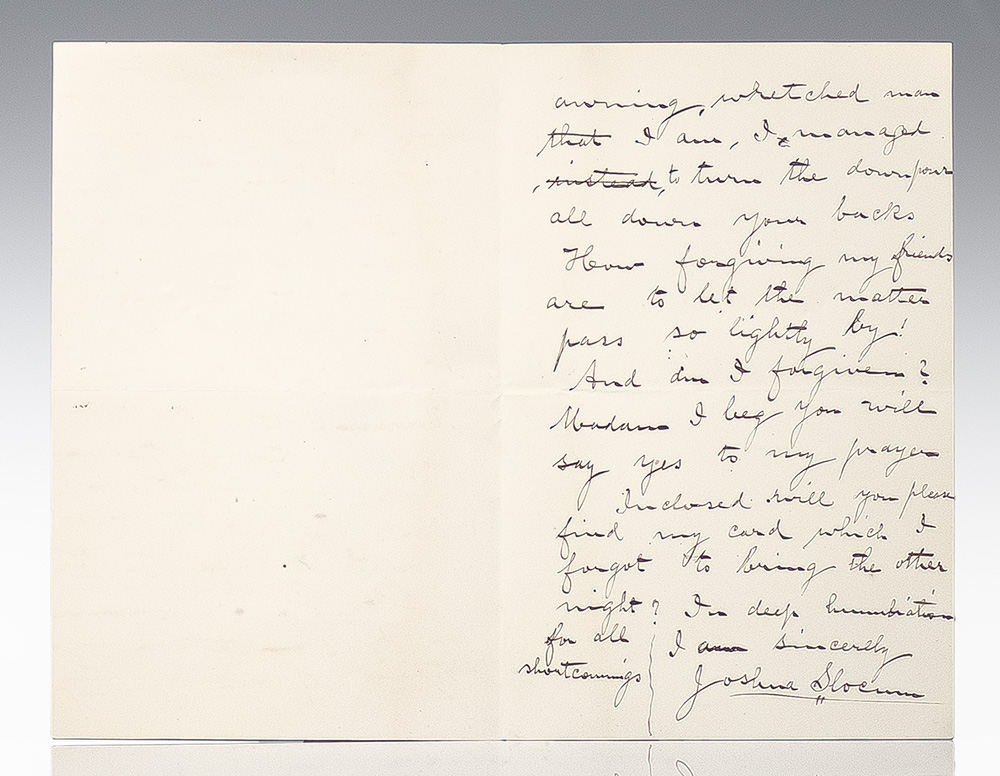 awning, whretched man
that I am, I managed
, instead, to turn the downpour
all down your backs
How forgiving my friends
are to let the matter
pass so lightly by!
And am I forgiven?
Madam I beg you will
say yes to my prayer
Inclosed will you please
find my card which I
forgot to bring the other
night? In deep humiliation
for all shortcomings
I am sincerely
Joshua Slocum